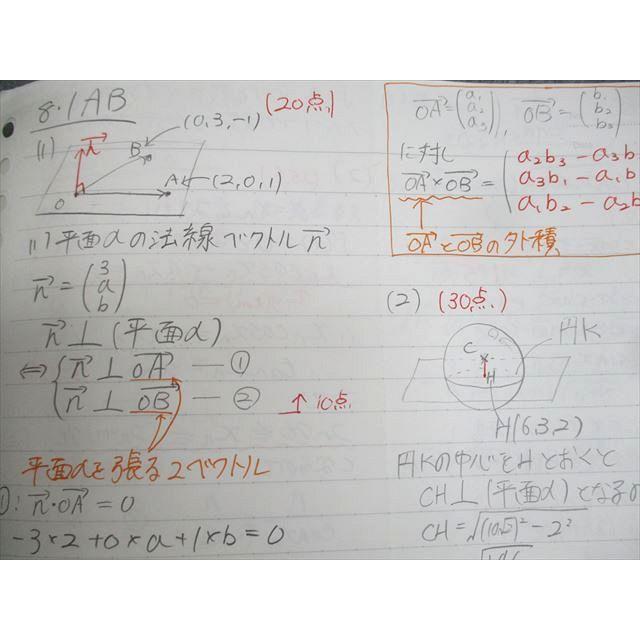 8・1AB
(20点)
(1)
n→
B
(0,3,-1)
O
A
(2,0,1)
(1) 平面αの法線ベクトル n→
n→ = (3 a b)
n→ ⊥ (平面α)
⇔ { n→ ⊥ OA→ — ①
n→ ⊥ OB→ — ②
↑ 10点
平面αを張る2ベクトル
①: n→・OA→ = 0
-3×2+0×a+1×b=0
OA→ = (a₁ a₂ a₃), OB→ = (b₁ b₂ b₃)
に対し
OA→×OB→ = (a₂b₃ - a₃b
a₃b₁ - a₁b
a₁b₂ - a₂b
OA→とOB→の外積
(2) (30点)
C
円K
H
H(6,3,2)
円Kの中心をHとおくと
CH⊥(平面α)となるの
CH = √(10√2)² - 2²